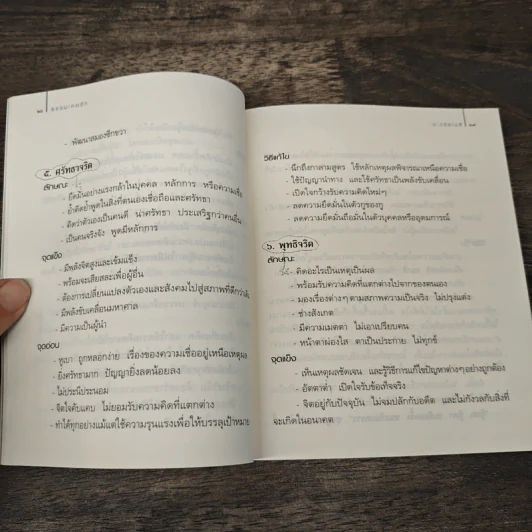 - พัฒนาสมองซีกขวา
๕. ศรัทธาจริต
ลักษณะ
- ยึดมั่นอย่างแรงกล้าในบุคคล หลักการ หรือความเชื่อ
- ย้ำคิดย้ำพูดในสิ่งที่ตนเองเชื่อถือและศรัทธา
- คิดว่าตัวเองเป็นคนดี น่าศรัทธา ประเสริฐกว่าคนอื่น
- เป็นคนจริงจัง พูดมีหลักการ
จุดแข็ง
- มีพลังจิตสูงและเข้มแข็ง
- พร้อมจะเสียสละเพื่อผู้อื่น
- ต้องการเปลี่ยนแปลงตัวเองและสังคมไปสู่สภาพที่ดีกว่าเดิม
- มีพลังขับเคลื่อนมหาศาล
- มีความเป็นผู้นำ
จุดอ่อน
- หูเบา ถูกหลอกง่าย เรื่องของความเชื่ออยู่เหนือเหตุผล
- ยิ่งศรัทธามาก ปัญญายิ่งลดน้อยลง
- ไม่ประนีประนอม
- จิตใจคับแคบ ไม่ยอมรับความคิดที่แตกต่าง
- ทำได้ทุกอย่างแม้แต่ใช้ความรุนแรงเพื่อให้บรรลุเป้าหมาย
วิธีแก้ไข
- นึกถึงกาลามสูตร ใช้หลักเหตุผลพิจารณาเหนือความเชื่อ
- ใช้ปัญญานำทาง และใช้ศรัทธาเป็นพลังขับเคลื่อน
- เปิดใจกว้างรับความคิดใหม่ๆ
- ลดความยึดมั่นในตัวกูของกู
- ลดความยึดมั่นถือมั่นในตัวบุคคลหรืออุดมการณ์
๖. พุทธิจริต
ลักษณะ
- คิดอะไรเป็นเหตุเป็นผล
- พร้อมรับความคิดที่แตกต่างไปจากของตนเอง
- มองเรื่องต่างๆ ตามสภาพความเป็นจริง ไม่ปรุงแต่ง
- ช่างสังเกต
- มีความเมตตา ไม่เอาเปรียบคน
- หน้าตาผ่องใส ตาเป็นประกาย ไม่ทุกข์
จุดแข็ง
- เห็นเหตุผลชัดเจน และรู้วิธีการแก้ไขปัญหาต่างๆอย่างถูกต้อง
- อัตตาต่ำ เปิดใจรับข้อเท็จจริง
- จิตอยู่กับปัจจุบัน ไม่จมปลักกับอดีต และไม่กังวลกับสิ่งที่
จะเกิดในอนาคต